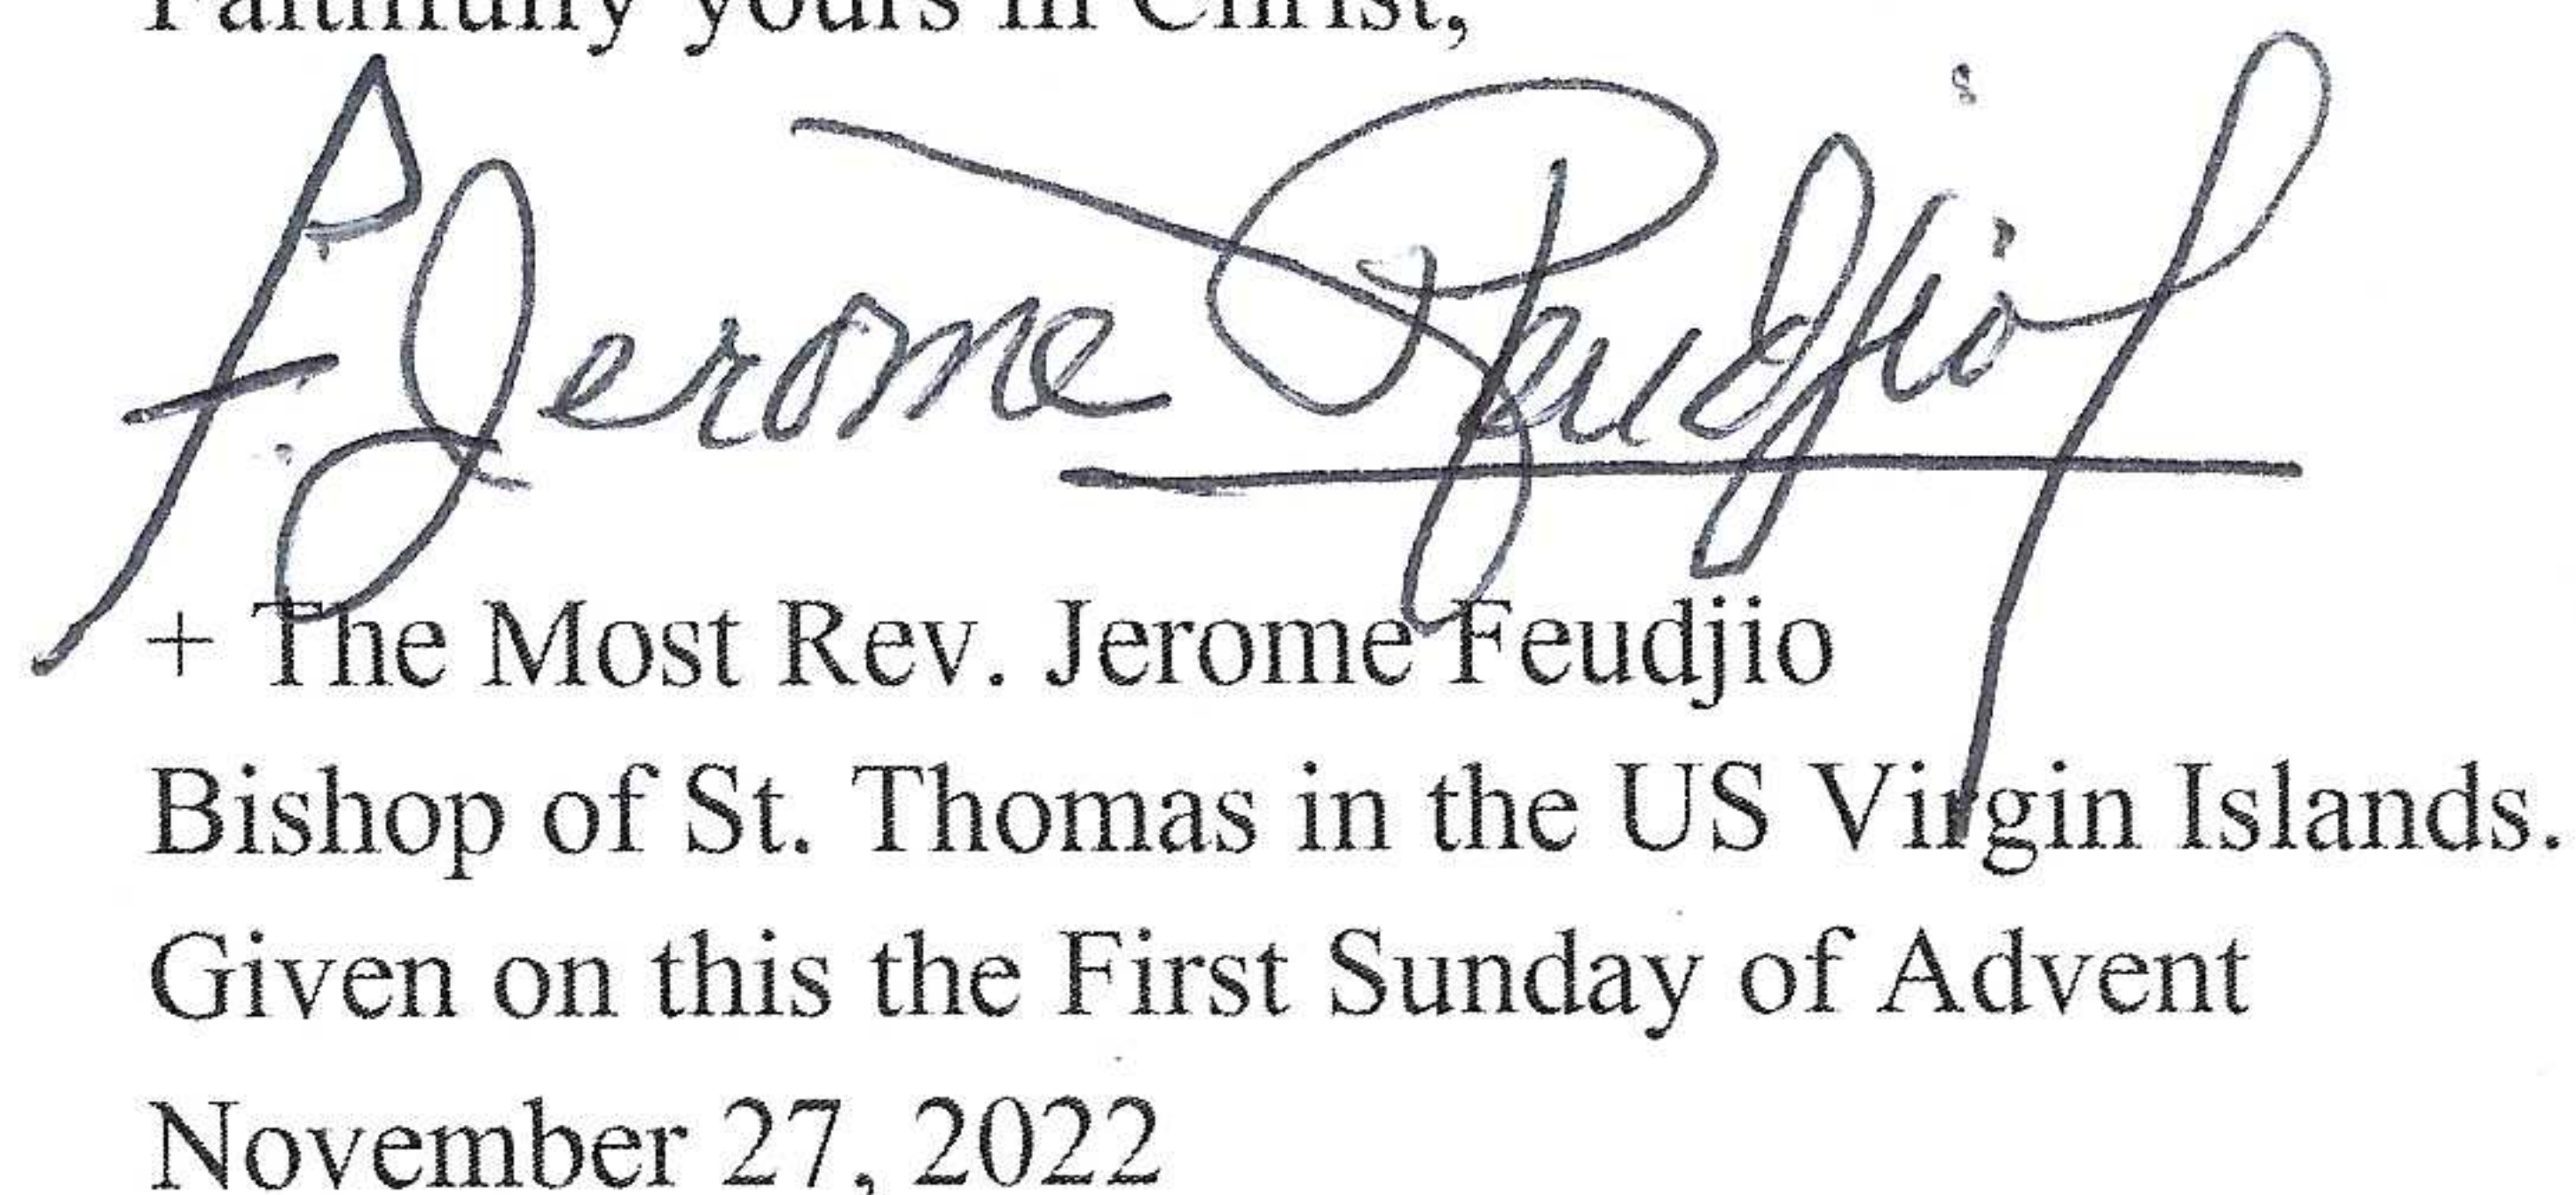 Faithfully yours in Christ,
+. Jerome Feudjio
+ The Most Rev. Jerome Feudjio
Bishop of St. Thomas in the US Virgin Islands.
Given on this the First Sunday of Advent
November 27, 2022